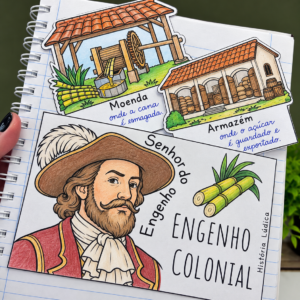 Moenda
onde a cana
é esmagada.
Armazém
onde o açúcar
é guardado e
exportado.
Senhor do
Engenho
ENGENHO
COLONIAL
História Lúdica